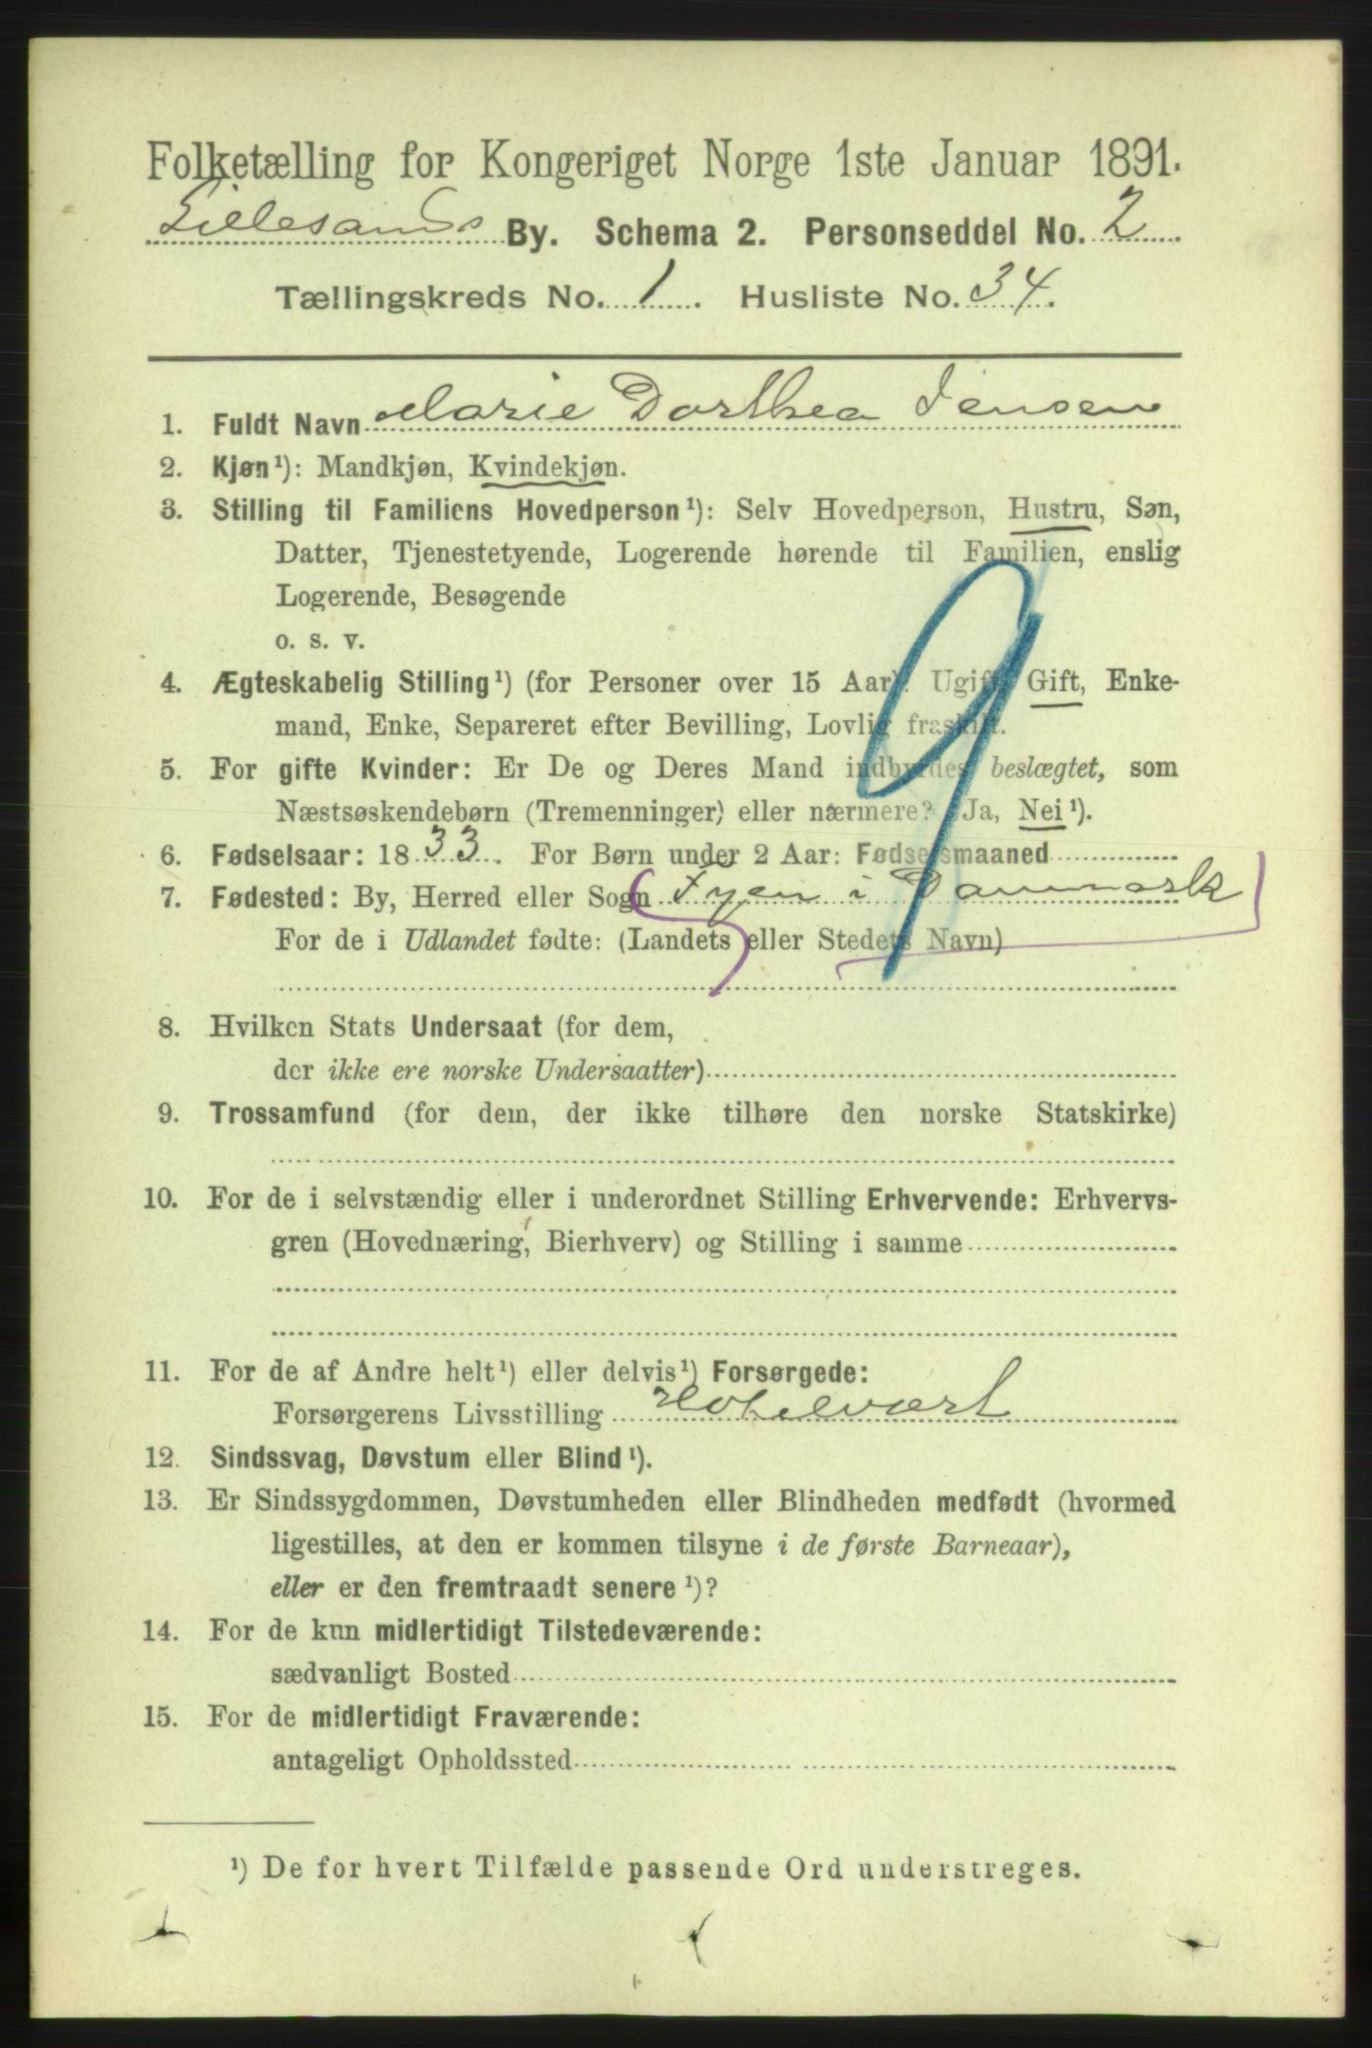 Folketælling for Kongeriget Norge 1ste Januar 1891.
Lillesands By. Schema 2. Personseddel No. 2
Tællingskreds No. 1. Husliste No. 34.
1. Fuldt Navn Marie Dorthea Jensen
2. Kjøn¹): Mandkjøn, Kvindekjøn.
3. Stilling til Familiens Hovedperson¹): Selv Hovedperson, Hustru, Søn,
Datter, Tjenestetyende, Logerende hørende til Familien, enslig
Logerende, Besøgende
o. s. v.
4. Ægteskabelig Stilling¹) (for Personer over 15 Aar): Ugift, Gift, Enke-
mand, Enke, Separeret efter Bevilling, Lovlig fraskilt.
5. For gifte Kvinder: Er De og Deres Mand indbyrdes beslægtet, som
Næstsøskendebørn (Tremenninger) eller nærmere? Ja, Nei¹).
6. Fødselsaar: 1833. For Børn under 2 Aar: Fødselsmaaned
7. Fødested: By, Herred eller Sogn Fyen i Danmark
For de i Udlandet fødte: (Landets eller Stedets Navn)
9
8. Hvilken Stats Undersaat (for dem,
der ikke ere norske Undersaatter)
9. Trossamfund (for dem, der ikke tilhøre den norske Statskirke)
10. For de i selvstændig eller i underordnet Stilling Erhvervende: Erhvervs-
gren (Hovednæring, Bierhverv) og Stilling i samme
11. For de af Andre helt¹) eller delvis¹) Forsørgede:
Forsørgerens Livsstilling Hotelvært
12. Sindssvag, Døvstum eller Blind¹).
13. Er Sindssygdommen, Døvstumheden eller Blindheden medfødt (hvormed
ligestilles, at den er kommen tilsyne i de første Barneaar),
eller er den fremtraadt senere¹)?
14. For de kun midlertidigt Tilstedeværende:
sædvanligt Bosted
15. For de midlertidigt Fraværende:
antageligt Opholdssted
¹) De for hvert Tilfælde passende Ord understreges.